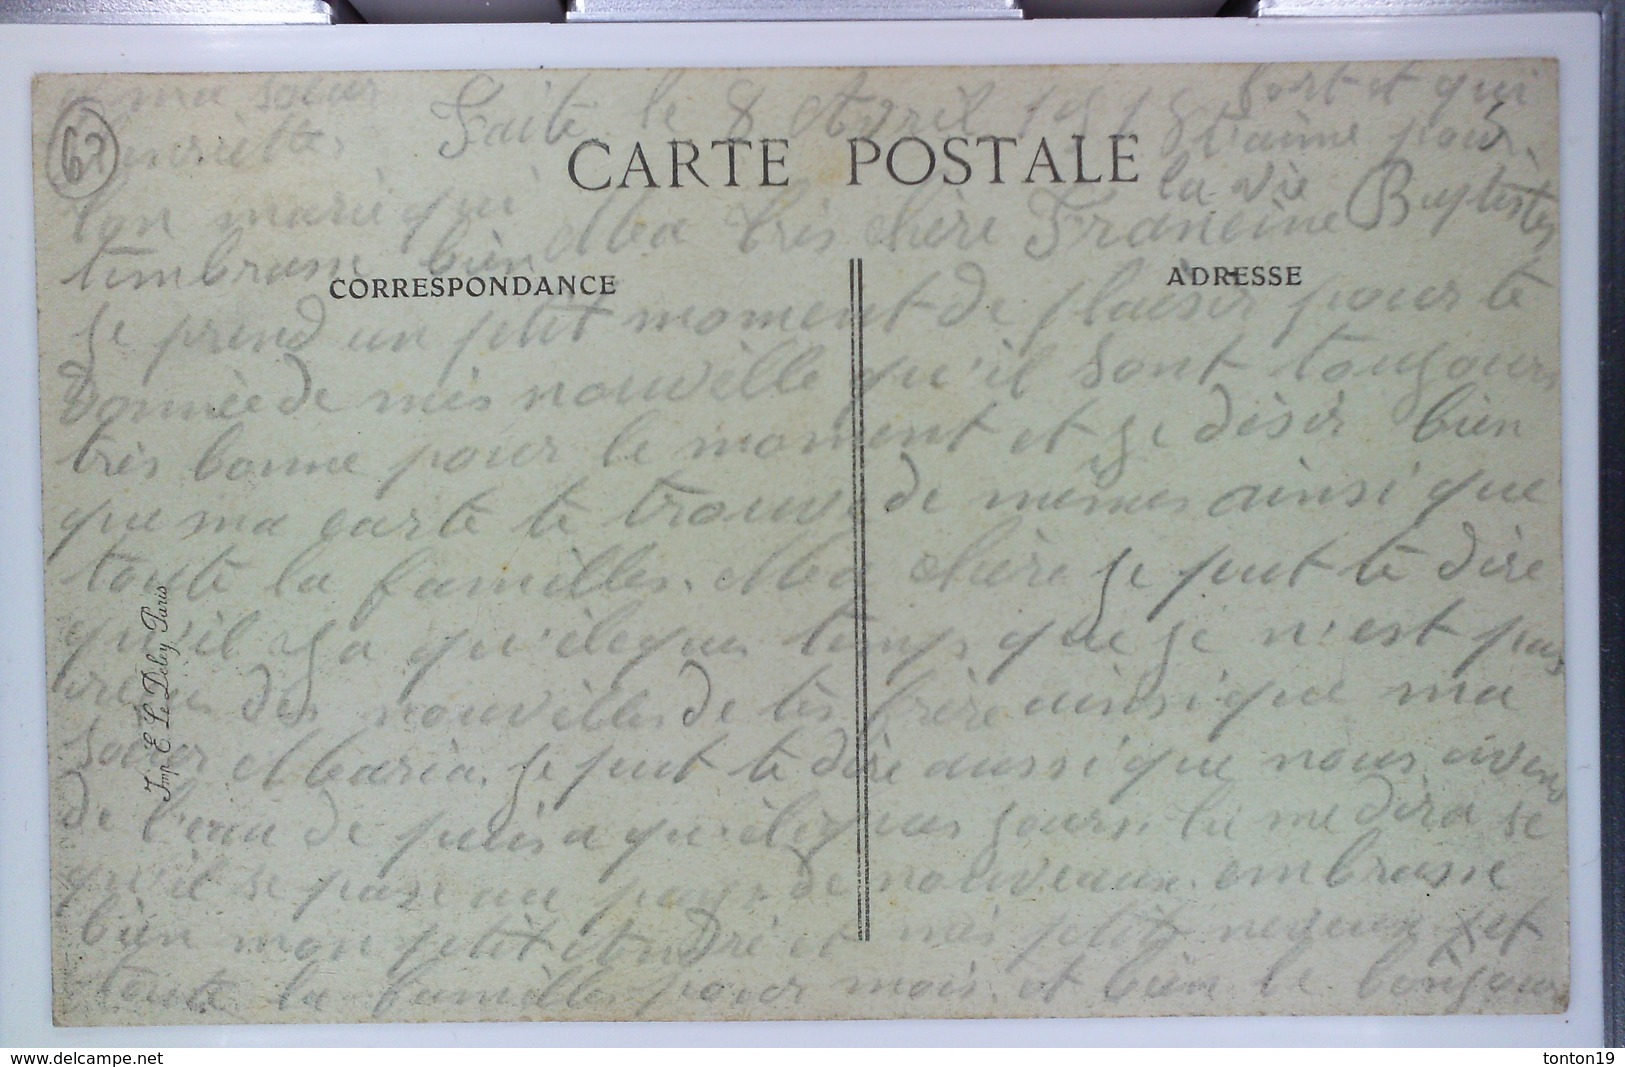 Faite le 8 Avril 1915
CARTE POSTALE
Ma très chère Francine
CORRESPONDANCE
ADRESSE
je prend un ptit moment de plaisir pour te
donnée de mes nouvelle qu'il sont toujours
très bonne pour le moment et je désir bien
que ma carte te trouve de mêmes ainsi que
toute la familles. Ma chère je put te dire
qu'il y a qu'éleques temps que je n'est pas
des nouvèlles de tes frère ainsi que ma
soeur Maria. je put te dire aussi que nous avons
de l'eau de puis a qu'éleques jours. tu me dira se
qu'il se passe au pays. de nouveaux. embrasse
bien mon ptit André et mes ptit neveux et
toute la familles pour mois. et bien le bonjour
a ma soeur
Henriette.
ton marie qui
t'embrasse bien
fort et qui
t'aime pour
la vie
Baptiste
62
Imp. E. Le Deley, Paris
delcampe.net
tonton19